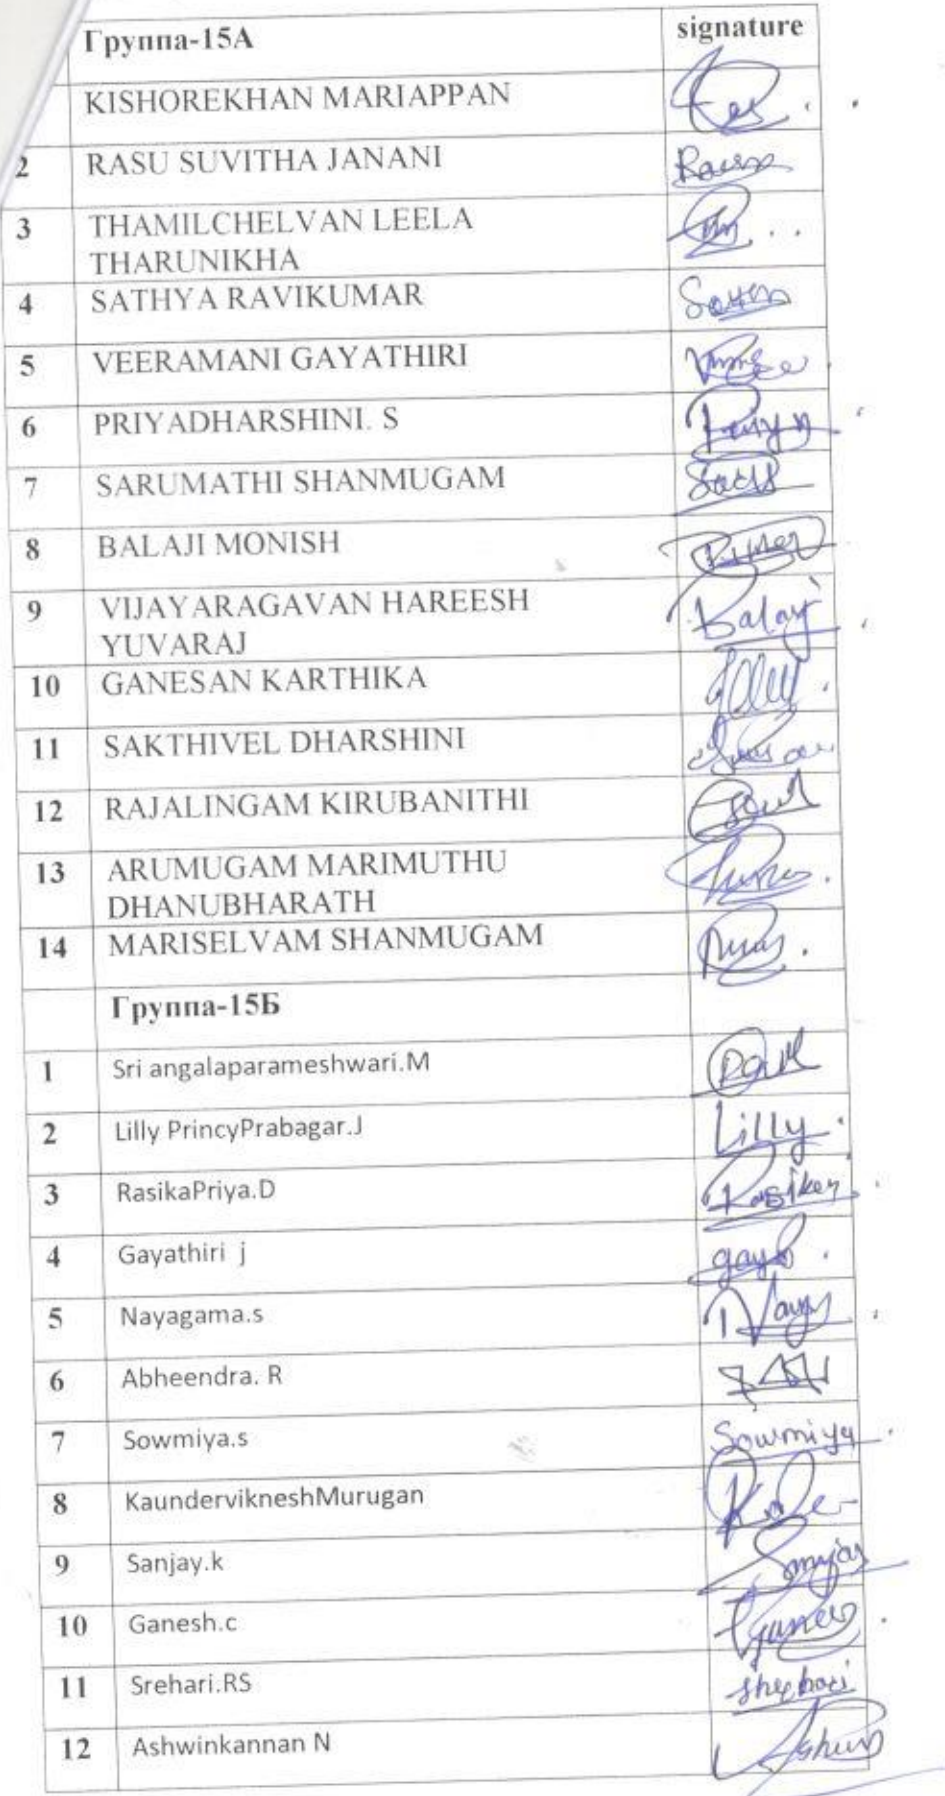 Группа-15А signature
KISHOREKHAN MARIAPPAN
2 RASU SUVITHA JANANI
3 THAMILCHELVAN LEELA
THARUNIKHA
4 SATHYA RAVIKUMAR
5 VEERAMANI GAYATHIRI
6 PRIYADHARSHINI. S
7 SARUMATHI SHANMUGAM
8 BALAJI MONISH
9 VIJAYARAGAVAN HAREESH
YUVARAJ Balaji
10 GANESAN KARTHIKA
11 SAKTHIVEL DHARSHINI
12 RAJALINGAM KIRUBANITHI
13 ARUMUGAM MARIMUTHU
DHANUBHARATH
14 MARISELVAM SHANMUGAM
Группа-15Б
1 Sri angalaparameshwari.M
2 Lilly PrincyPrabagar.J Lilly
3 RasikaPriya.D
4 Gayathiri j
5 Nayagama.s
6 Abheendra. R
7 Sowmiya.s Sowmiya
8 KaundervikneshMurugan
9 Sanjay.k
10 Ganesh.c
11 Srehari.RS
12 Ashwinkannan N